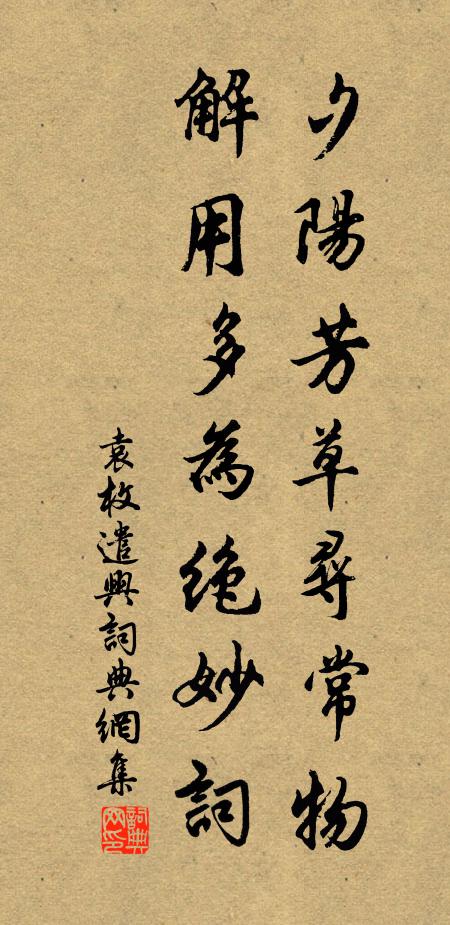 夕陽芳草尋常物
解用多為絶妙詞
袁枚遣興詞典網集
詞典網印